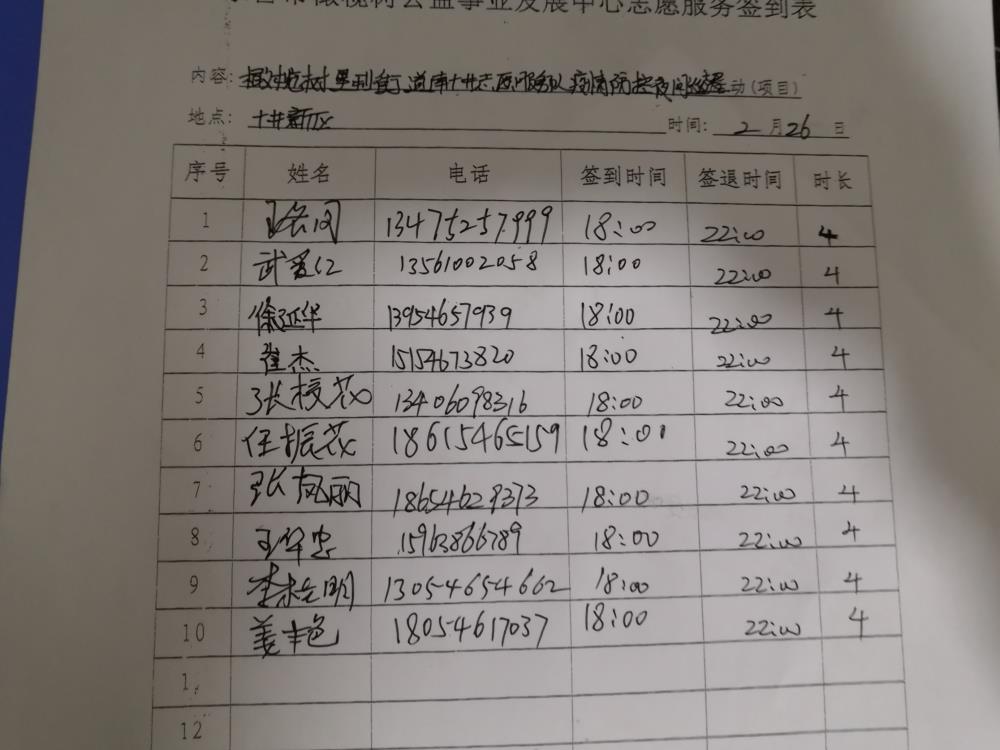 市橄榄树公益事业发展中心志愿服务签到表
内容: 橄榄树 街道 志愿服务队 疫情防控夜间 动(项目)
地点: 十井新区 时间: 2 月 26 日
序号 姓名 电话 签到时间 签退时间 时长
1 13475257999 18:00 22:00 4
2 武爱仁 13561002058 18:00 22:00 4
3 徐延华 13954657939 18:00 22:00 4
4 崔杰 15154673820 18:00 22:00 4
5 张校花 13406098316 18:00 22:00 4
6 任振花 18615465159 18:00 22:00 4
7 张凤丽 18654629373 18:00 22:00 4
8 15963866789 18:00 22:00 4
9 李 明 13054654662 18:00 22:00 4
10 姜丰色 18054617037 18:00 22:00 4
1
12